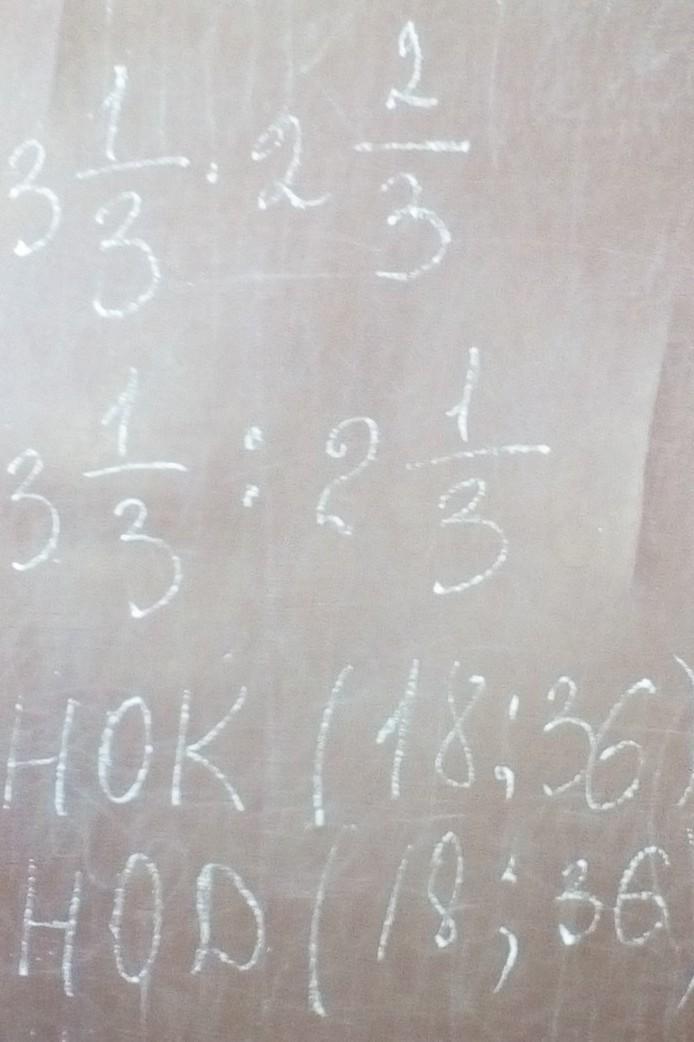 3 1/3 · 2 2/3
3 1/3 : 2 1/3
НОК (18; 36)
НОД (18; 36)